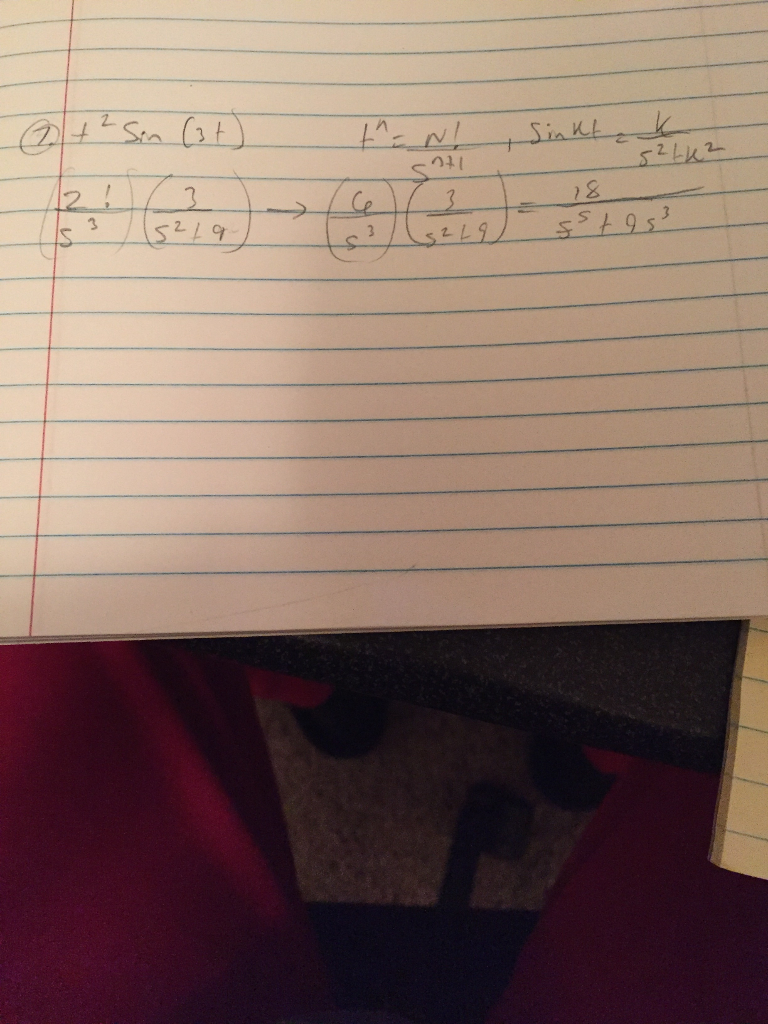 ⑦ t² Sin (3t) tⁿ = N!/sⁿ⁺¹ , Sin kt = k/(s²+k²)
(2!/s³) (3/(s²+9)) → (6/s³) (3/(s²+9)) = 18/(s⁵+9s³)